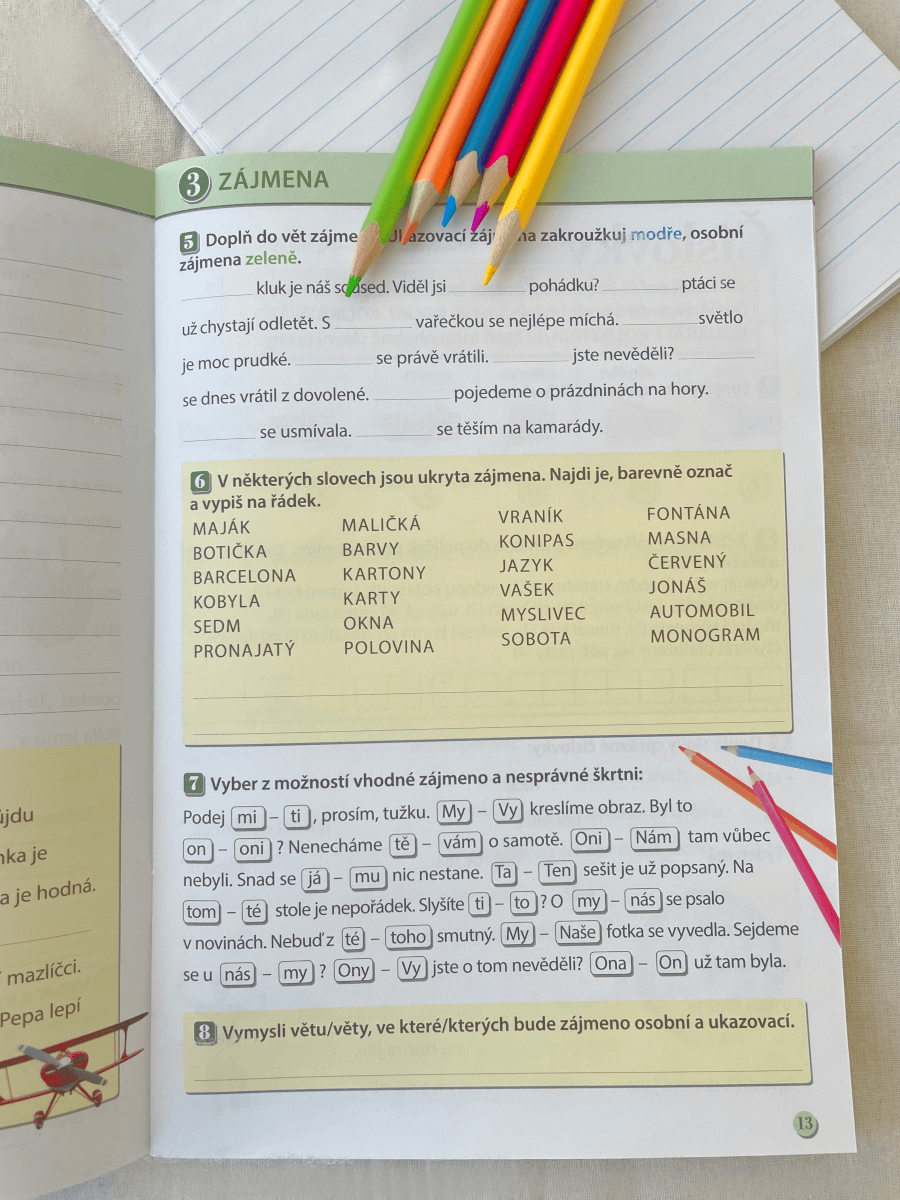 3 ZÁJMENA
5 Doplň do vět zájme Ukazovací zájmena zakroužkuj modře, osobní
zájmena zeleně.
kluk je náš soused. Viděl jsi pohádku? ptáci se
už chystají odletět. S vařečkou se nejlépe míchá. světlo
je moc prudké. se právě vrátili. jste nevěděli?
se dnes vrátil z dovolené. pojedeme o prázdninách na hory.
se usmívala. se těším na kamarády.
6 V některých slovech jsou ukryta zájmena. Najdi je, barevně označ
a vypiš na řádek.
MAJÁK MALIČKÁ VRANÍK FONTÁNA
BOTIČKA BARVY KONIPAS MASNA
BARCELONA KARTONY JAZYK ČERVENÝ
KOBYLA KARTY VAŠEK JONÁŠ
SEDM OKNA MYSLIVEC AUTOMOBIL
PRONAJATÝ POLOVINA SOBOTA MONOGRAM
7 Vyber z možností vhodné zájmeno a nesprávné škrtni:
Podej mi – ti, prosím, tužku. My – Vy kreslíme obraz. Byl to
on – oni? Nenecháme tě – vám o samotě. Oni – Nám tam vůbec
nebyli. Snad se já – mu nic nestane. Ta – Ten sešit je už popsaný. Na
tom – té stole je nepořádek. Slyšíte ti – to? O my – nás se psalo
v novinách. Nebuď z té – toho smutný. My – Naše fotka se vyvedla. Sejdeme
se u nás – my? Ony – Vy jste o tom nevěděli? Ona – On už tam byla.
8 Vymysli větu/věty, ve které/kterých bude zájmeno osobní a ukazovací.
13
ůjdu
nka je
a je hodná.
mazlíčci.
Pepa lepí